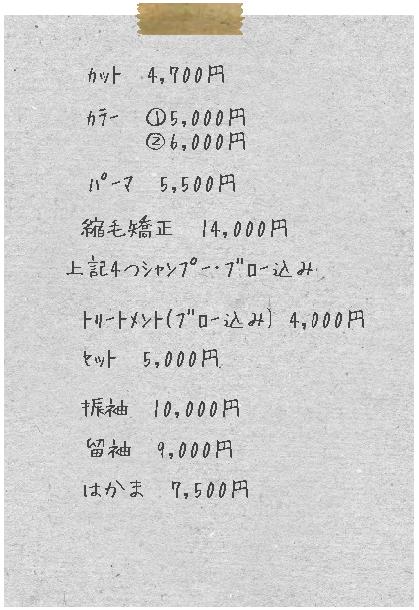 カット 4,700円
カラー ①5,000円
②6,000円
パーマ 5,500円
縮毛矯正 14,000円
上記4つシャンプー・ブロー込み
トリートメント(ブロー込み) 4,000円
セット 5,000円
振袖 10,000円
留袖 9,000円
はかま 7,500円